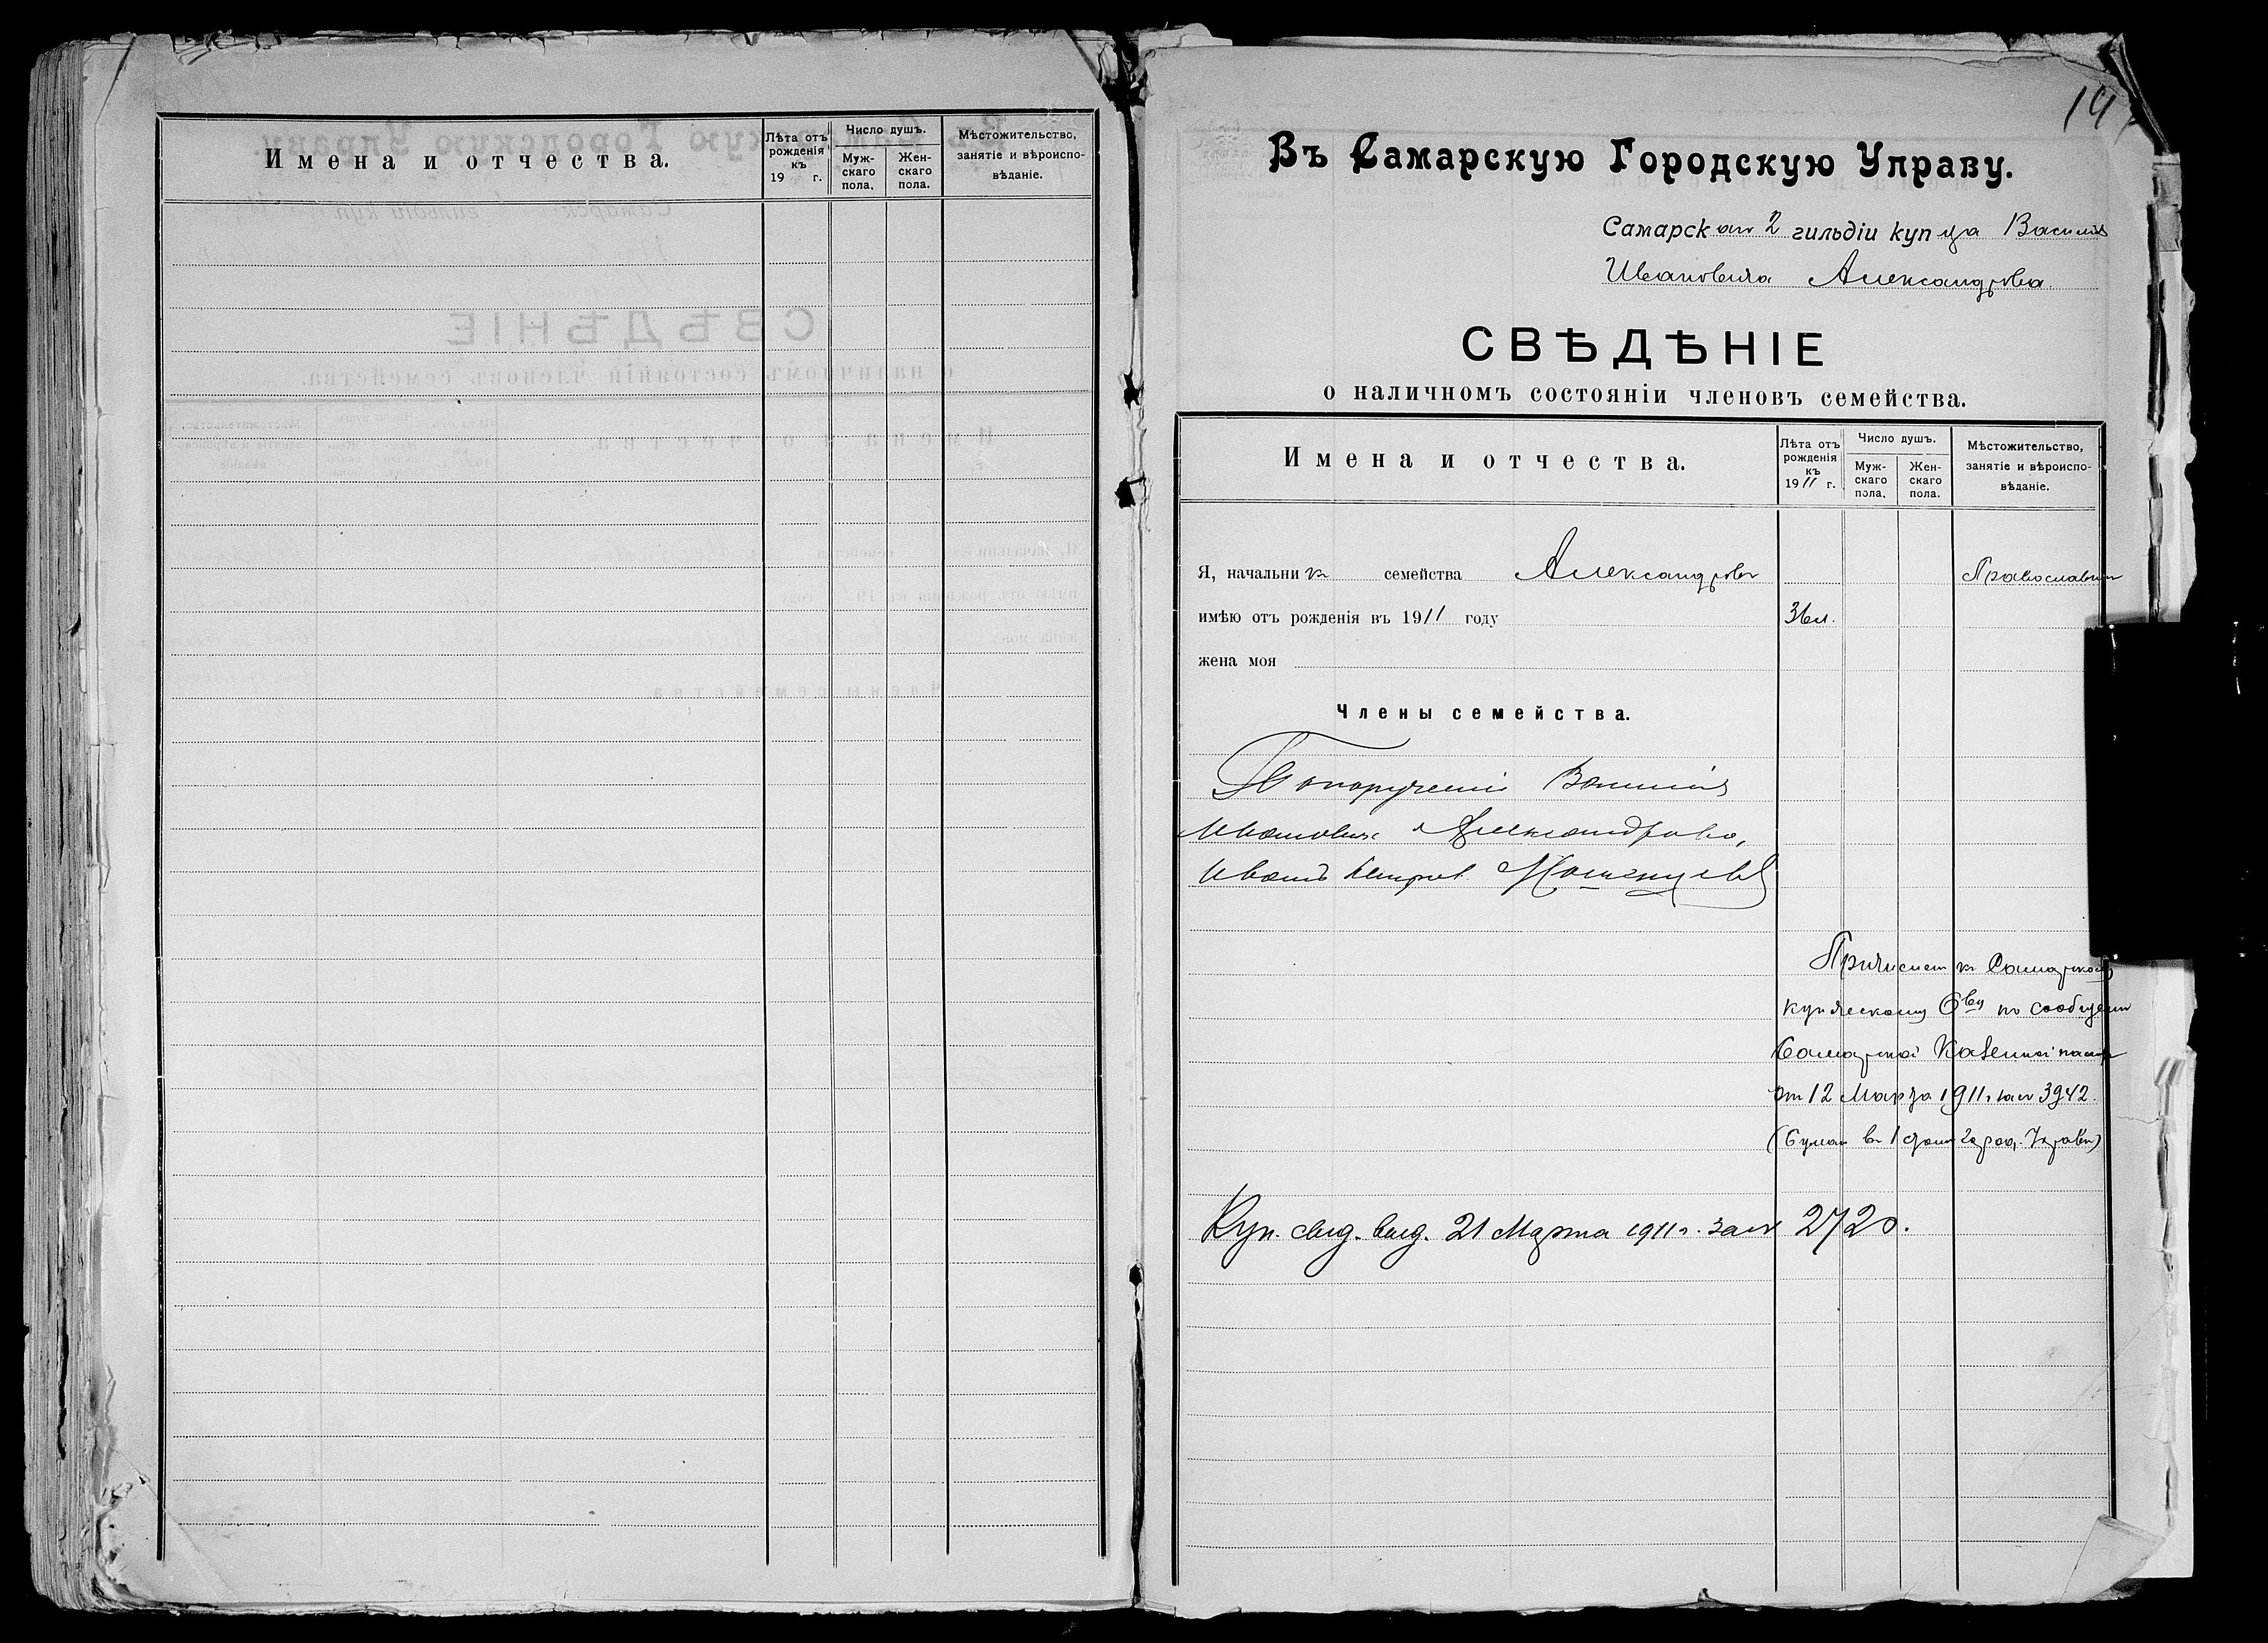 Имена и отчества.
Лѣта отъ рожденія къ 19 г.
Число душъ.
Муж-скаго пола.
Жен-скаго пола.
Мѣстожительство, занятіе и вѣроиспо-вѣданіе.
Въ Самарскую Городскую Управу.
Самарскаго 2 гильдіи купца Василія
Ивановича Александрова.
СВѢДѢНІЕ
о наличномъ состояніи членовъ семейства.
Имена и отчества.
Лѣта отъ рожденія къ 1911 г.
Число душъ.
Муж-скаго пола.
Жен-скаго пола.
Мѣстожительство, занятіе и вѣроиспо-вѣданіе.
Я, начальник семейства Александров
имѣю отъ рожденія въ 1911 году 36 л.
жена моя
Члены семейства.
По порученію Василія
Ивановича Александрова,
Иванъ Петров
Причислен к Самарскому
купеческому О-ву по сообщению
Самарской Казенной палаты
от 12 Марта 1911 г. за № 3942.
Куп. свид. выд. 21 Марта 1911 г. за № 2720.